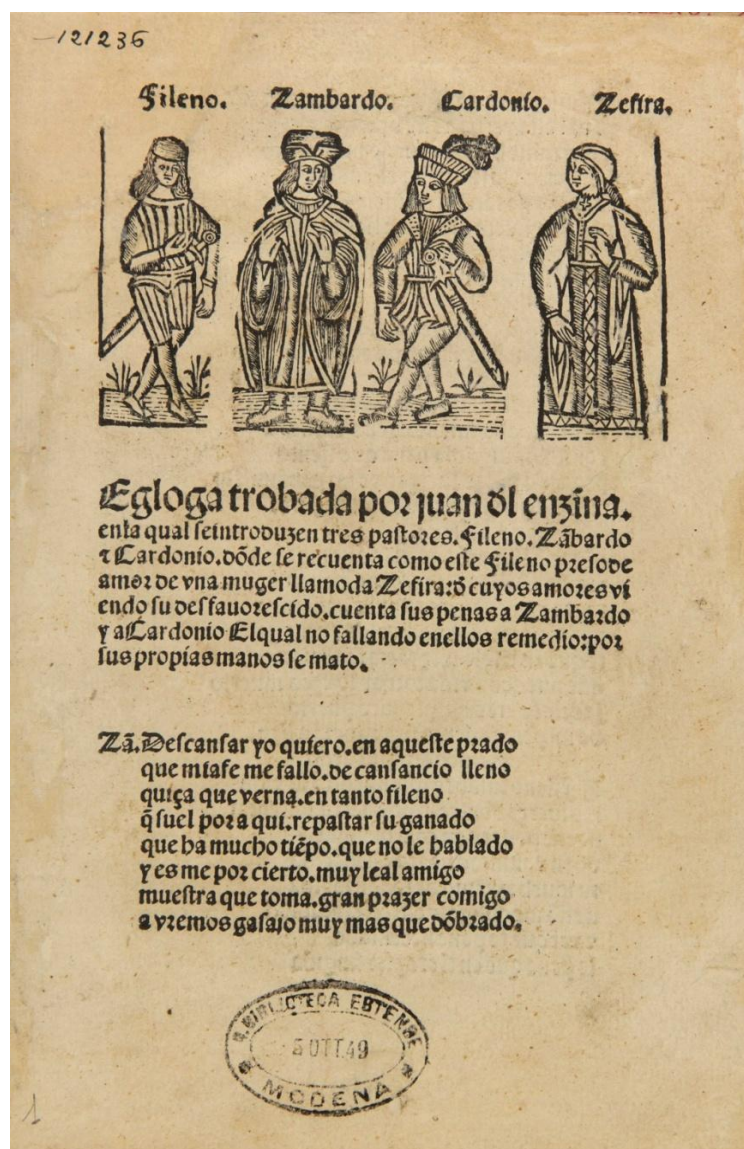 121236
Fileno. Zambardo. Cardonio. Zefira.
Egloga trobada por juan dl enzĩna.
enla qual seintroduzen tres pastores. Fileno. Zãbardo
⁊ Cardonio. dõde se recuenta como este Fileno preso de
amor de vna muger llamoda Zefira: d̃ cuyos amores vi
endo su desfauorescido. cuenta sus penas a Zambardo
y a Cardonio Elqual no fallando enellos remedio: por
sus propias manos se mato.
Zã. Descansar yo quiero. en aqueste prado
que miafe me fallo. de cansancio lleno
quiça que verna. en tanto fileno
q̃ suel por a qui. repastar su ganado
que ha mucho tiẽpo. que no le hablado
y es me por cierto. muy leal amigo
muestra que toma. gran prazer comigo
a vremos gasajo muy mas que dõbrado.
R. BIBLIOTECA ESTENSE
5 OTT. 49
MODENA
1